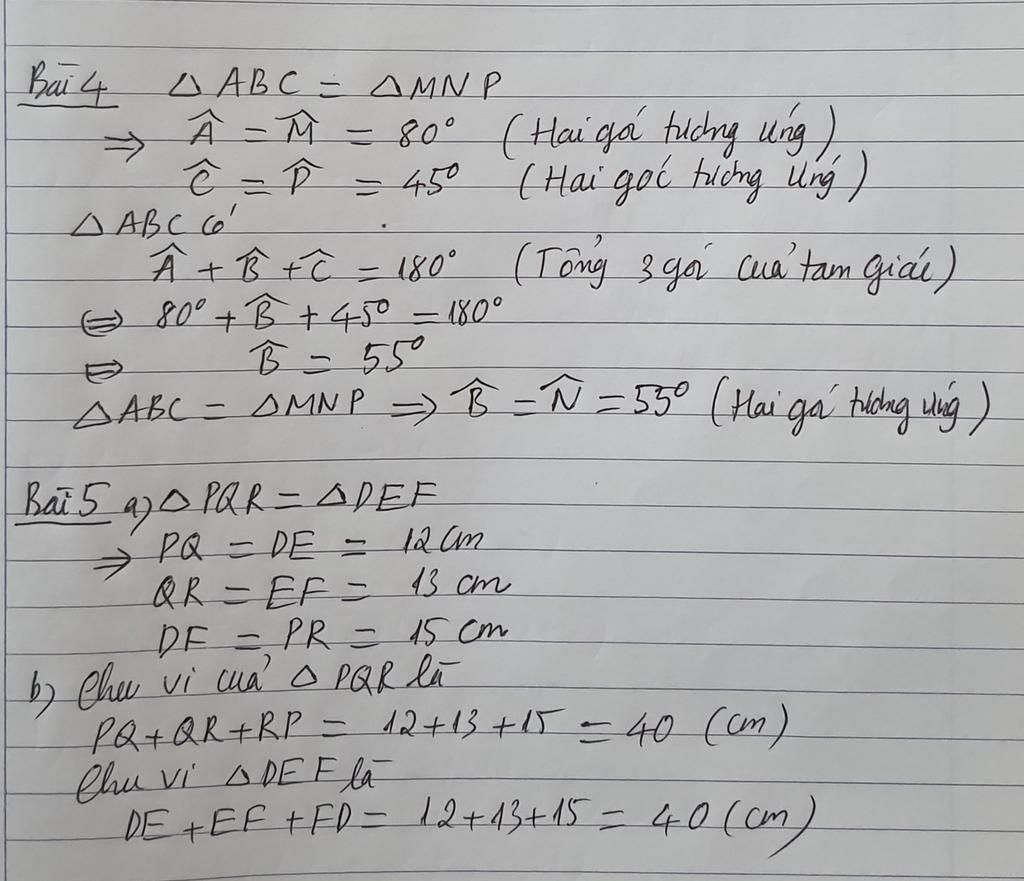 Bài 4 △ABC = △MNP
⇒ Â = M̂ = 80° (Hai góc tương ứng)
Ĉ = P̂ = 45° (Hai góc tương ứng)
△ABC có
Â + B̂ + Ĉ = 180° (Tổng 3 góc của tam giác)
⇔ 80° + B̂ + 45° = 180°
⇔ B̂ = 55°
△ABC = △MNP ⇒ B̂ = N̂ = 55° (Hai góc tương ứng)
Bài 5 a) △PQR = △DEF
⇒ PQ = DE = 12 cm
QR = EF = 13 cm
DF = PR = 15 cm
b) Chu vi của △PQR là
PQ+QR+RP = 12+13+15 = 40 (cm)
Chu vi △DEF là
DE+EF+FD = 12+13+15 = 40 (cm)